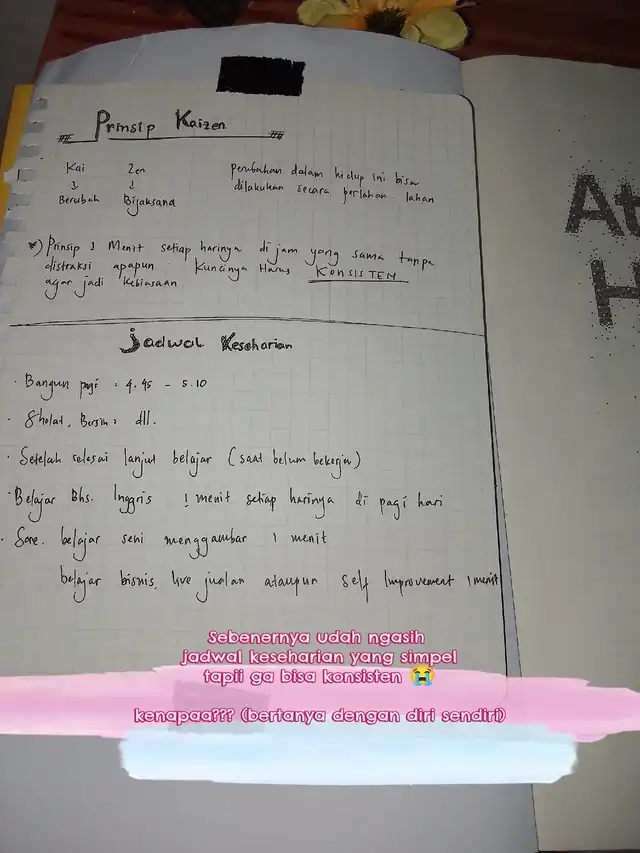 Prinsip Kaizen
Kai Zen
↓ ↓
Berubah Bijaksana
Perubahan dalam hidup ini bisa
dilakukan secara perlahan-lahan
*) Prinsip 1 Menit setiap harinya di jam yang sama tanpa
distraksi apapun Kuncinya Harus KONSISTEN
agar jadi kebiasaan
Jadwal Keseharian
· Bangun pagi : 4.45 - 5.10
· Sholat, Bersih² dll.
· Setelah selesai lanjut belajar (saat belum bekerja)
· Belajar Bhs. Inggris 1 menit setiap harinya di pagi hari
· Sore. belajar seni menggambar 1 menit
belajar bisnis, live jualan ataupun Self Improvement 1 menit
At
H
Sebenernya udah ngasih
jadwal keseharian yang simpel
tapii ga bisa konsisten 😭
kenapaa??? (bertanya dengan diri sendiri)